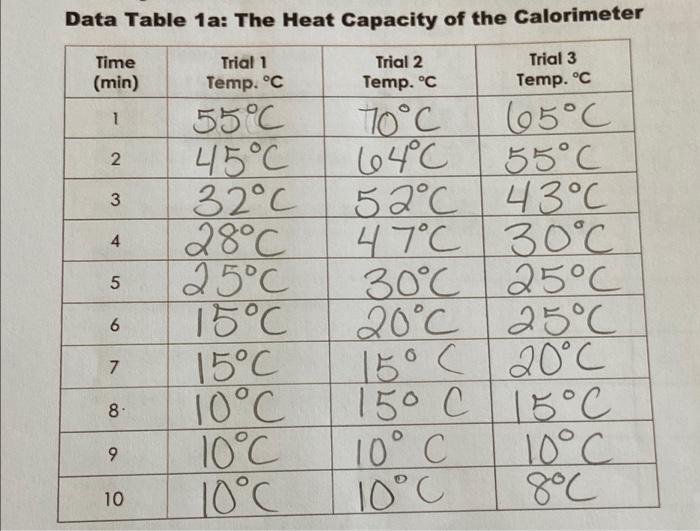 Data Table 1a: The Heat Capacity of the Calorimeter
Time (min) Trial 1 Temp. °C Trial 2 Temp. °C Trial 3 Temp. °C
1 55°C 70°C 65°C
2 45°C 64°C 55°C
3 32°C 52°C 43°C
4 28°C 47°C 30°C
5 25°C 30°C 25°C
6 15°C 20°C 25°C
7 15°C 15°C 20°C
8 10°C 15° C 15°C
9 10°C 10° C 10°C
10 10°C 10°C 8°C